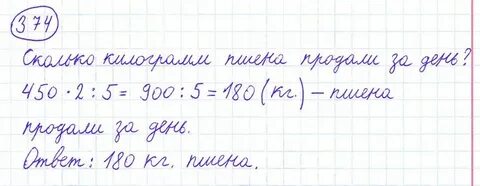 374
Сколько килограмм пшена продали за день?
450 · 2 : 5 = 900 : 5 = 180 (кг.) – пшена
продали за день.
Ответ: 180 кг. пшена.